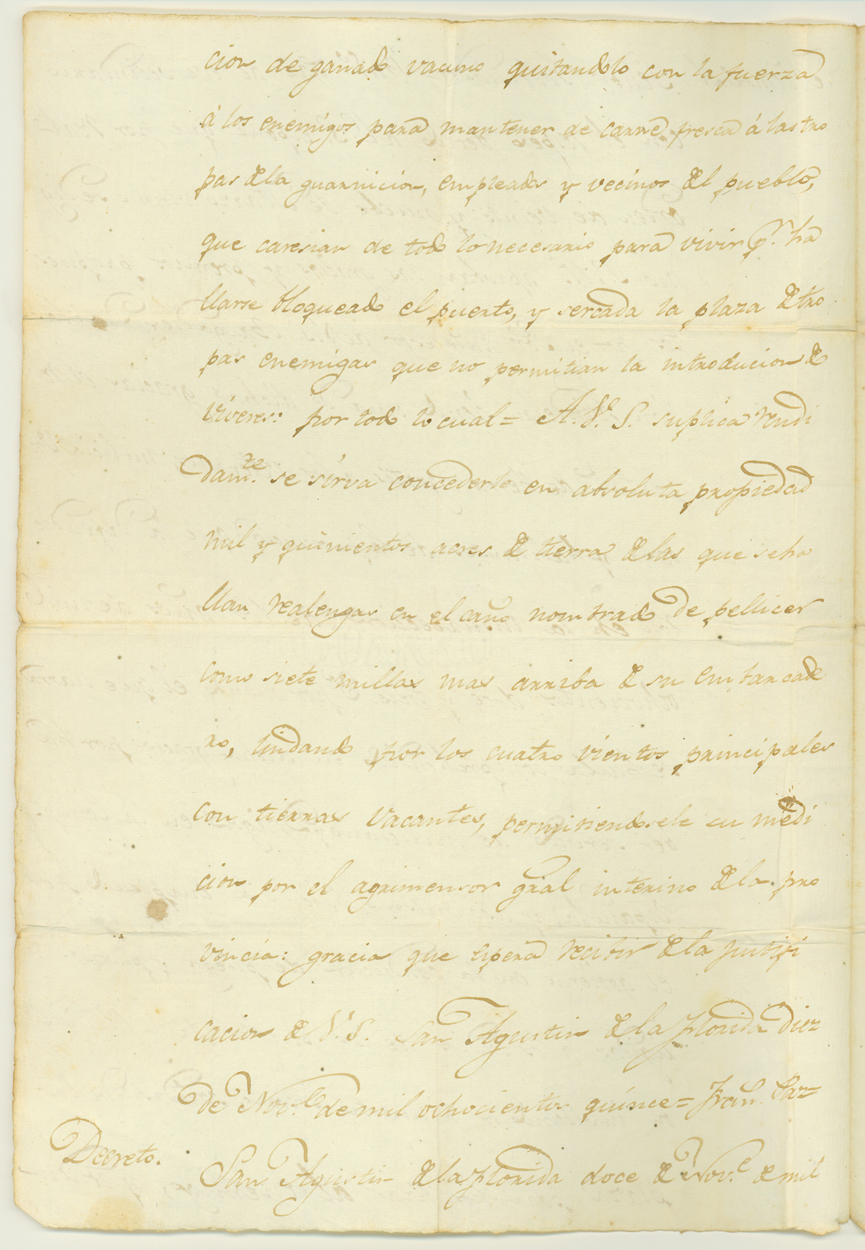 cion de ganado vacuno quitandolo con la fuerza
á los enemigos para mantener de carne fresca á las tro
pas de la guarnicion, empleados y vecinos del pueblo,
que caresian de todo lo necesario para vivir pr. ha
llarse bloqueado el puerto, y sercada la plaza de tro
pas enemigas que no permitian la introducion de
viveres: por todo lo cual= A. V. S. suplica rendi
damte. se sirva concederle en absoluta propiedad
mil y quinientos acres de tierra de las que se ha
llan realengas en el caño nombrado de pellicer
como siete millas mas arriba de su embarcade
ro, lindando por los cuatro vientos principales
con tierras vacantes, permitiendosele su medi
cion por el agrimensor gral interino de la pro
vincia: gracia que espera recibir de la justifi
cacion de V. S. San Agustin de la Florida diez
de Nove. de mil ochocientos quince= Fran.
Decreto.
San Agustin de la Florida doce de Nove. de mil